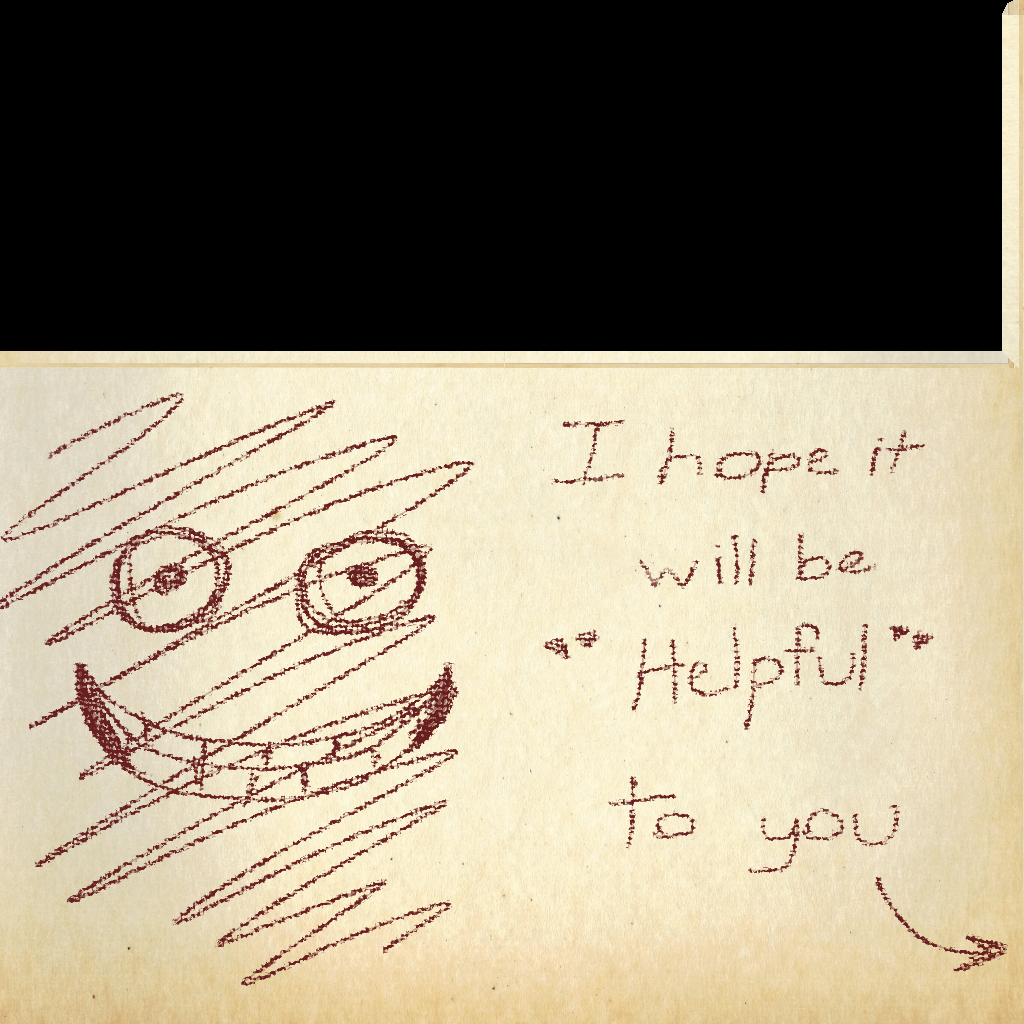 I hope it
will be
"Helpful"
to you